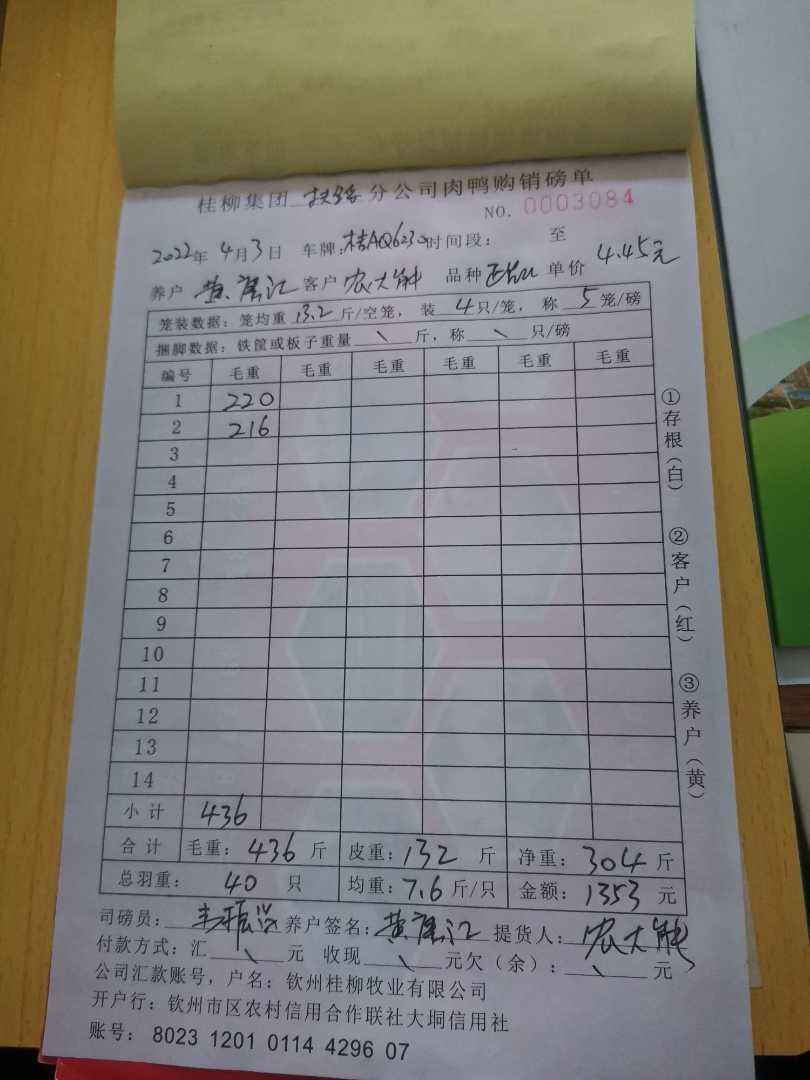 桂柳集团 扶绥 分公司肉鸭购销磅单
NO. 0003084
2022年 4月3日 车牌:桂AQ6230 时间段: 至
养户 黄 江 客户 农大能 品种 单价 4.45元
笼装数据:笼均重 13.2 斤/空笼, 装 4 只/笼, 称 5 笼/磅
捆脚数据:铁筐或板子重量 \ 斤,称 \ 只/磅
编号 毛重 毛重 毛重 毛重 毛重 毛重
1 220
2 216
3
4
5
6
7
8
9
10
11
12
13
14
小计 436
合计 毛重: 436 斤 皮重: 132 斤 净重: 304 斤
总羽重: 40 只 均重: 7.6 斤/只 金额: 1353 元
司磅员: 振 养户签名: 黄 江 提货人: 农大能
付款方式:汇 \ 元 收现 \ 元欠(余): \ 元
公司汇款账号,户名:钦州桂柳牧业有限公司
开户行:钦州市区农村信用合作联社大垌信用社
账号: 8023 1201 0114 4296 07
①存根(白)
②客户(红)
③养户(黄)